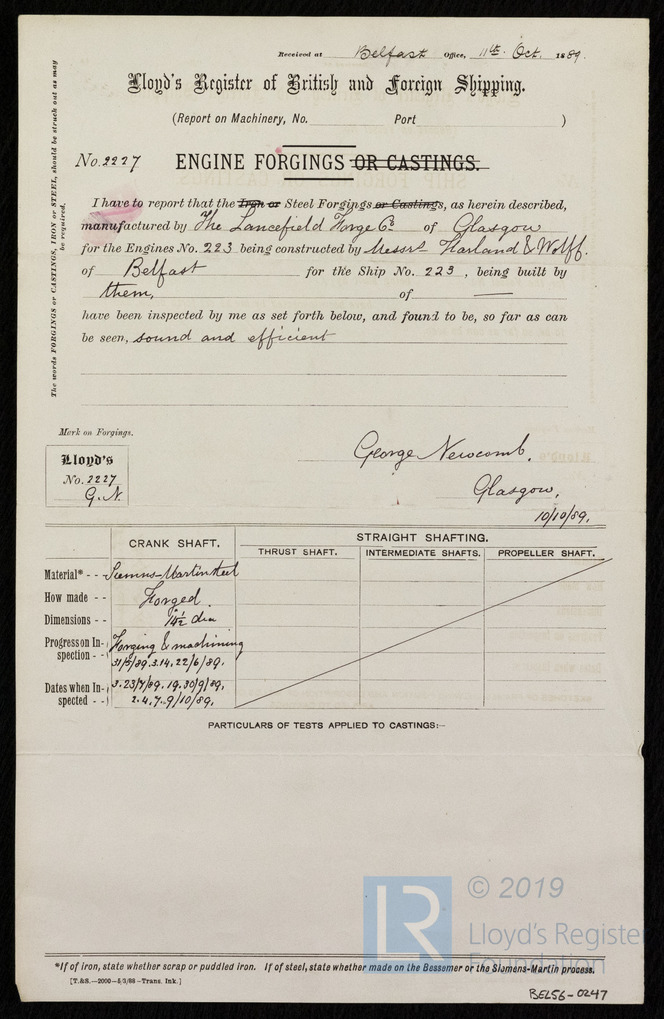 Received at Belfast Office, 11th Oct. 1889.
Lloyd's Register of British and Foreign Shipping.
(Report on Machinery, No. Port )
No. 2227 ENGINE FORGINGS OR CASTINGS.
I have to report that the Iron or Steel Forgings or Castings, as herein described,
manufactured by The Lancefield Forge Co of Glasgow
for the Engines No. 223 being constructed by Messrs Harland & Wolff.
of Belfast for the Ship No. 223, being built by
them, of —
have been inspected by me as set forth below, and found to be, so far as can
be seen, sound and efficient
The words FORGINGS or CASTINGS, IRON or STEEL, should be struck out as may
be required.
Mark on Forgings.
Lloyd's
No. 2227
G.N.
George Newcomb.
Glasgow,
10/10/89.
CRANK SHAFT. STRAIGHT SHAFTING.
THRUST SHAFT. INTERMEDIATE SHAFTS. PROPELLER SHAFT.
Material* - - Siemens-Martin steel
How made - - Forged
Dimensions - - 14½ dia
Progress on In- Forging & machining
spection - - 31/5/89. 3.14. 22/6/89.
Dates when In- 3. 23/7/89. 19. 30/9/89.
spected - - 2. 4. 7. 9/10/89.
PARTICULARS OF TESTS APPLIED TO CASTINGS:—
LR
© 2019
Lloyd's Register
Foundation
*If of iron, state whether scrap or puddled iron. If of steel, state whether made on the Bessemer or the Siemens-Martin process.
[T.&S.—2000—5/3/88—Trans. Ink.]
BEL56-0247